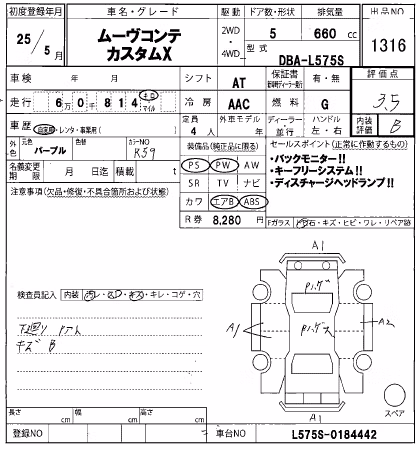 初度登録年月
車名・グレード
駆動
ドア数・形状
排気量
出品NO
25/5月
ムーヴコンテ
カスタムX
2WD
・
4WD
5
660 cc
型式
DBA-L575S
1316
車検 年 月
シフト
AT
保証書
有・無
評価点
3.5
走行 6万0千814 キロ マイル
冷房
AAC
燃料
G
車歴 自家用・レンタ・事業用( )
定員
4人
外車モデル
年
ディーラー
並行
ハンドル
左・右
内装評価
B
外色
元色
パープル
色替
カラーNO
K59
装備品(純正品に限る)
セールスポイント(正常に作動するもの)
名義変更期限 月 日迄
積載 t
PS PW AW
・バックモニター!!
・キーフリーシステム!!
・ディスチャージヘッドランプ!!
注意事項(欠品・修復・不具合箇所および状態)
SR TV ナビ
カワ エアB ABS
R券 8,280 円
Fガラス 飛石・キズ・ヒビ・ワレ・リペア跡
A1
検査員記入
内装 汚レ・スレ・キズ・キレ・コゲ・穴
下廻り
キズ B
A1
A2
A1
スペア
長さ cm
幅 cm
高さ cm
登録NO
車台NO
L575S-0184442